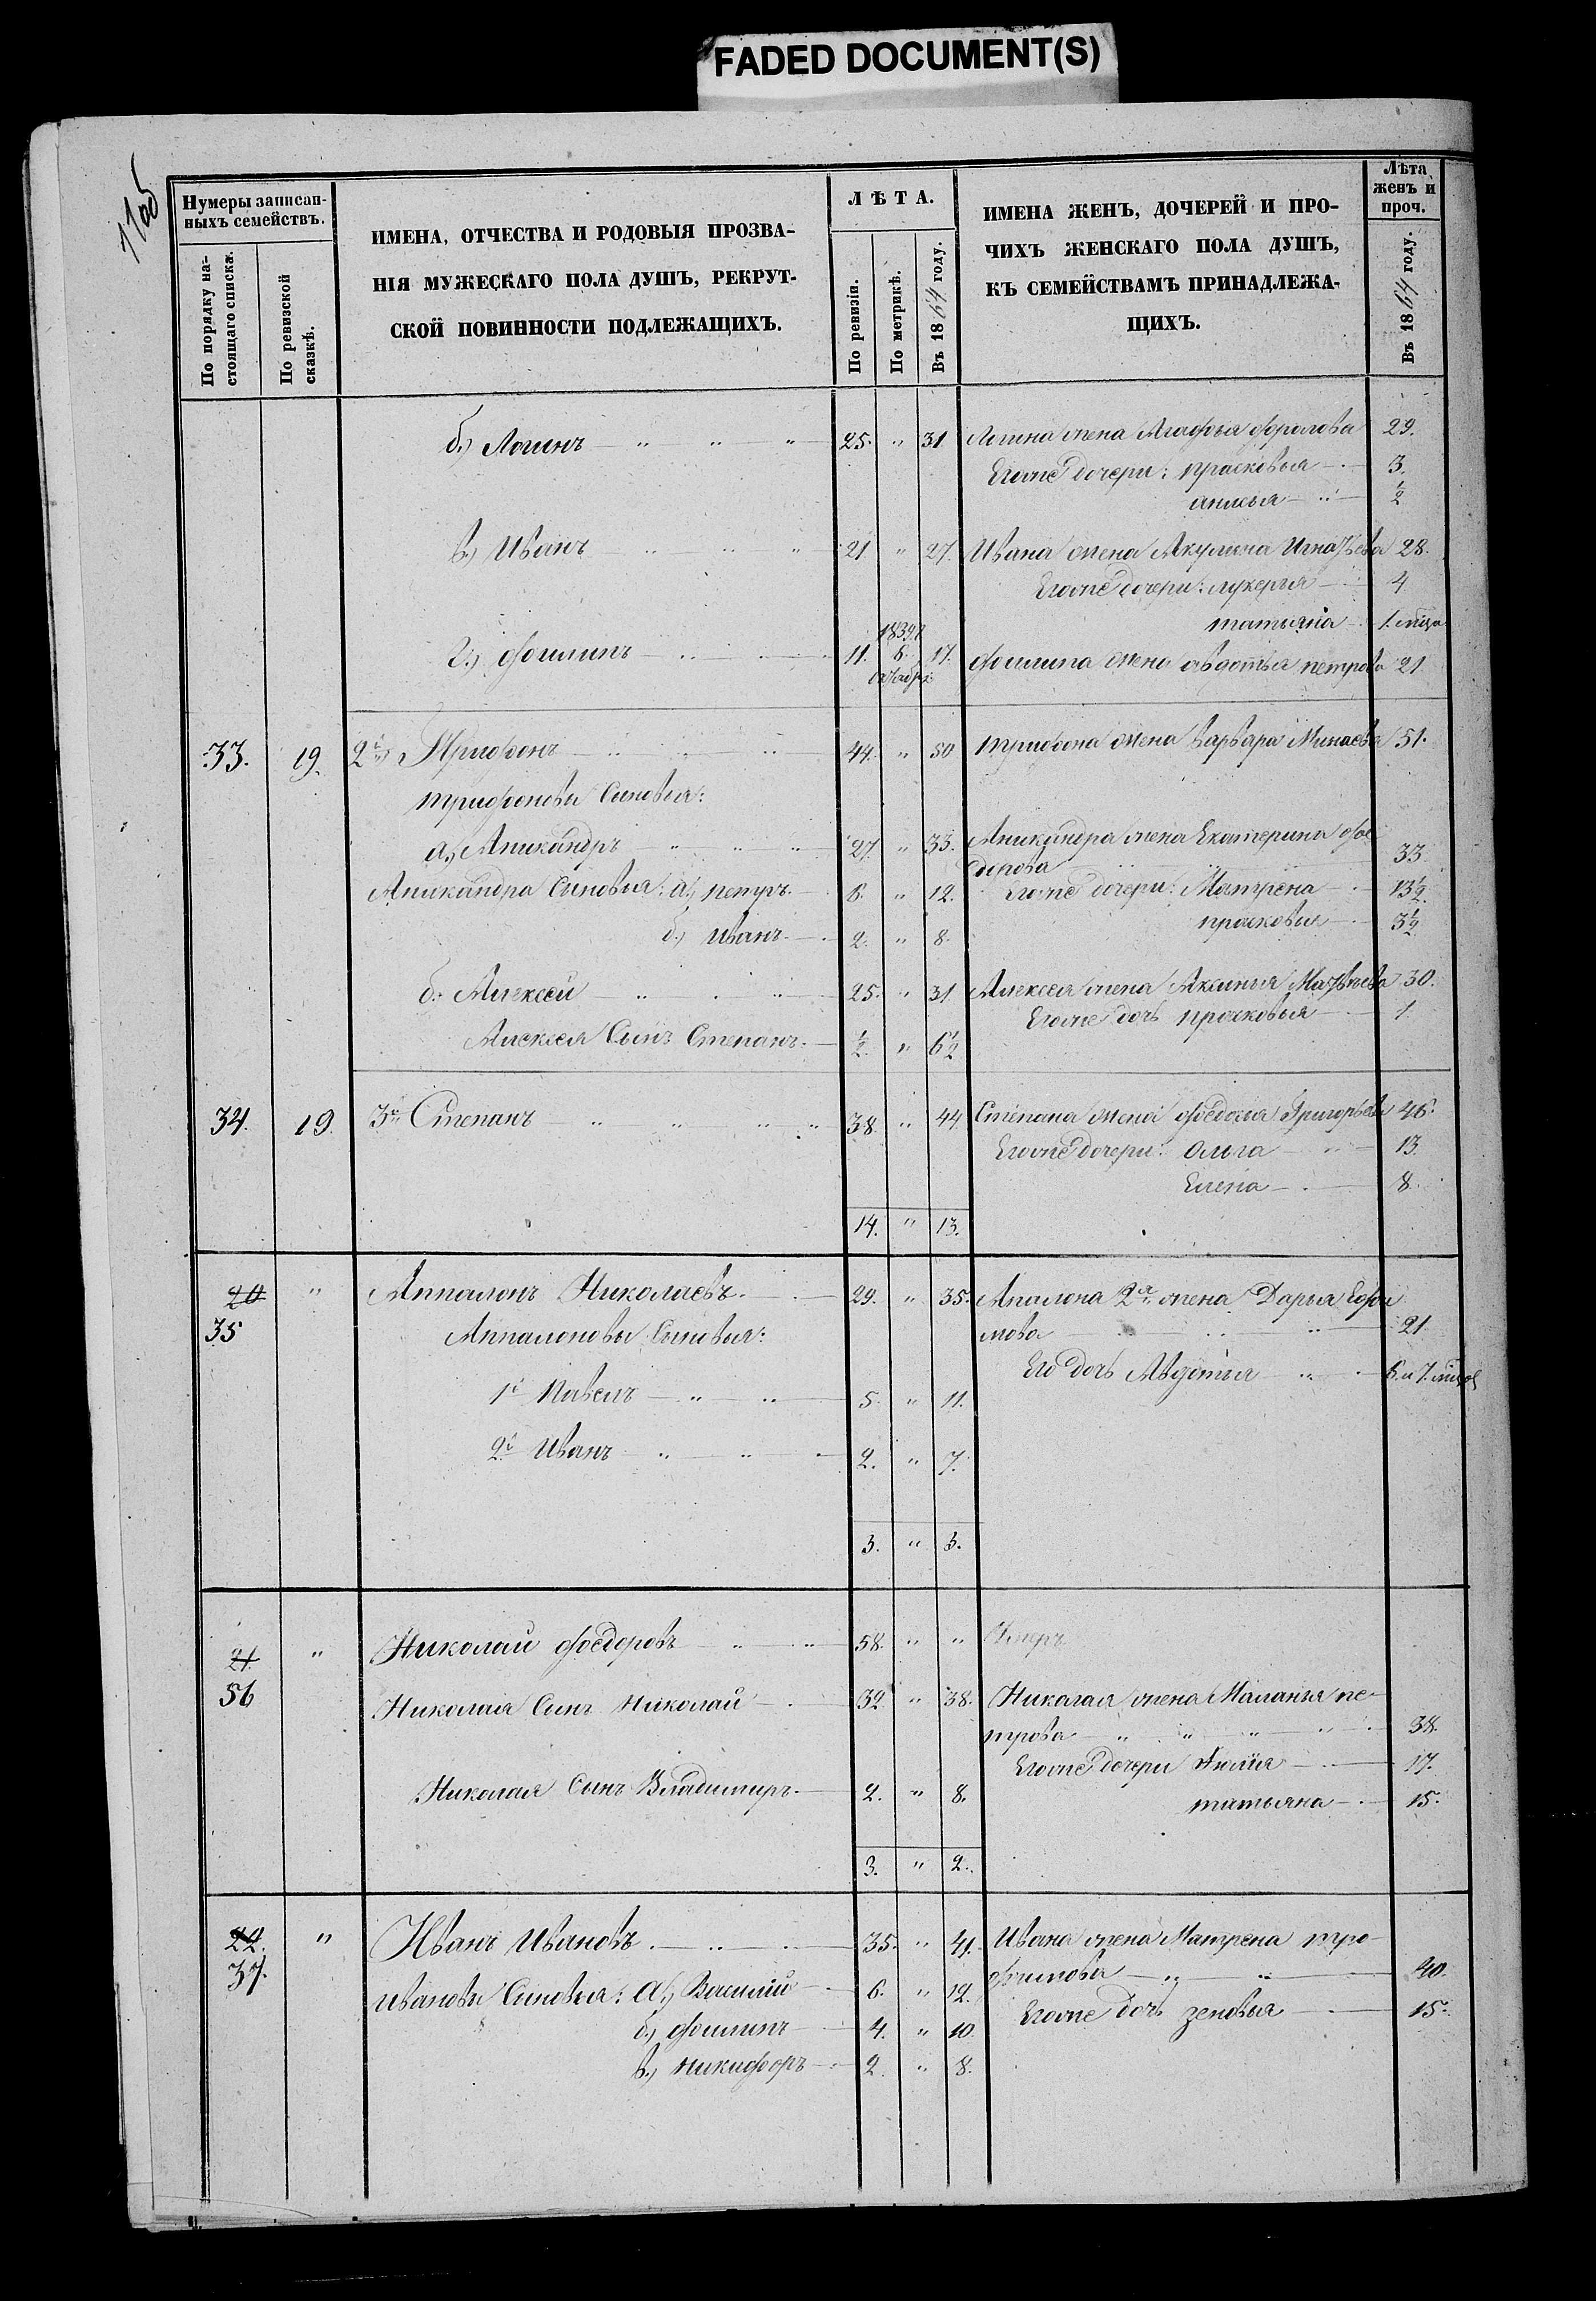 FADED DOCUMENT(S)
11об
Нумеры записан-
ныхъ семействъ.
По порядку на-
стоящаго списка.
По ревизской
сказкѣ.
ИМЕНА, ОТЧЕСТВА И РОДОВЫЯ ПРОЗВА-
НІЯ МУЖЕСКАГО ПОЛА ДУШЪ, РЕКРУТ-
СКОЙ ПОВИННОСТИ ПОДЛЕЖАЩИХЪ.
ЛѢТА.
По ревизіи.
По метрикѣ.
Въ 1864 году.
ИМЕНА ЖЕНЪ, ДОЧЕРЕЙ И ПРО-
ЧИХЪ ЖЕНСКАГО ПОЛА ДУШЪ,
КЪ СЕМЕЙСТВАМЪ ПРИНАДЛЕЖА-
ЩИХЪ.
Лѣта
женъ и
проч.
Въ 1864 году.
б.) Логинъ — " — " — " 25. " 31 Логина жена Агафья Фролова 29.
Егоже дочери: Прасковья — 3.
анисья — " — ½
в.) Иванъ " — " — " 21 " 27. Ивана жена Акулина Игнатьева 28.
Егоже дочери: лукерья — 4
татьяна 1. мѣца
г.) Филипъ — " — 11. 6. 17. Филипа жена авдотья петрова 21
33. 19. 2й Трифонъ — " — " 44. " 50 трифона жена варвара Минаева 51.
трифоновы Сыновья:
а.) Аникандръ " " " 27. " 33. Аникандра жена Екатерина Фе
дорова 33
Аникандра Сыновья: а.) петръ. 6. " 12. Егоже дочери: Матрена — 13½.
б.) иванъ. — 2. " 8. прасковья — 3½
б. Алексей " . " 25. " 31 Алексея жена Аксинья Матвѣева 30.
Егоже дочь прасковья — 1
Алексея Сынъ Степанъ. — ½. " 6½
34. 19. 3й Степанъ " " " " 38. " 44 Степана жена Федосья Григорьева 46.
Егоже дочери: ольга — " — 13.
Елена — . — 8.
14. " 13.
20 " Аппалонъ Николаевъ. — 29. " 35. Апалона 2я жена Дарья Ефи
35 Аппалоновы Сыновья: мова — " 21
Его дочь Авдотья " . 6 и 7. мѣцов
1й Павелъ — " — " — 5. " 11.
2й Иванъ " — " — 2. " 7.
3. " 3.
21. " Николай Федоровъ " — " 58. " " Умеръ
36
Николая Сынъ николай — 32 " 38. Николая жена Маланья пе-
трова — " " " 38.
Егоже дочери Юлия — 17.
Николая Сынъ Владимиръ. — 2. " 8. татьяна — 15.
3. " 2.
22. " Иванъ Ивановъ. — " — 35. " 41. Ивана жена Матрена тро-
37. фимова — " — " — 40.
ивановы Сыновья: а.) Василий 6. " 12.
Егоже дочь зеновья — 15.
б.) Филипъ — 4. " 10
в.) никифоръ — 2. " 8.